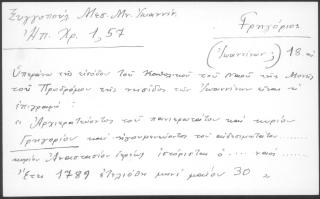 Ξυγγοπούλ Μεσ. Μν. Ἰωαννίν
Ἠπ. Χρ. 1, 57
Γρηγόριος
(Ἰωαννίνων) 18 αἰ
Ὑπεράνω τῆς εἰσόδου τοῦ Καθολικοῦ τοῦ Ναοῦ τῆς Μονῆς
τοῦ Προδρόμου τῆς νησῖδος τῶν Ἰωαννίνων εἶναι ἡ
ἐπιγραφή:
" Ἀρχιερατεύοντος τοῦ πανιερωτάτου καὶ κυρίου
Γρηγορίου καὶ ἡγουμενεύοντος τοῦ αἰδεσιμωτάτου ......
κυρίου Ἀναστασίου ἱστόρισται ὁ .... ναός ....
Ἔτει 1789 ἐτελιόθη μηνί μαΐου 30 "